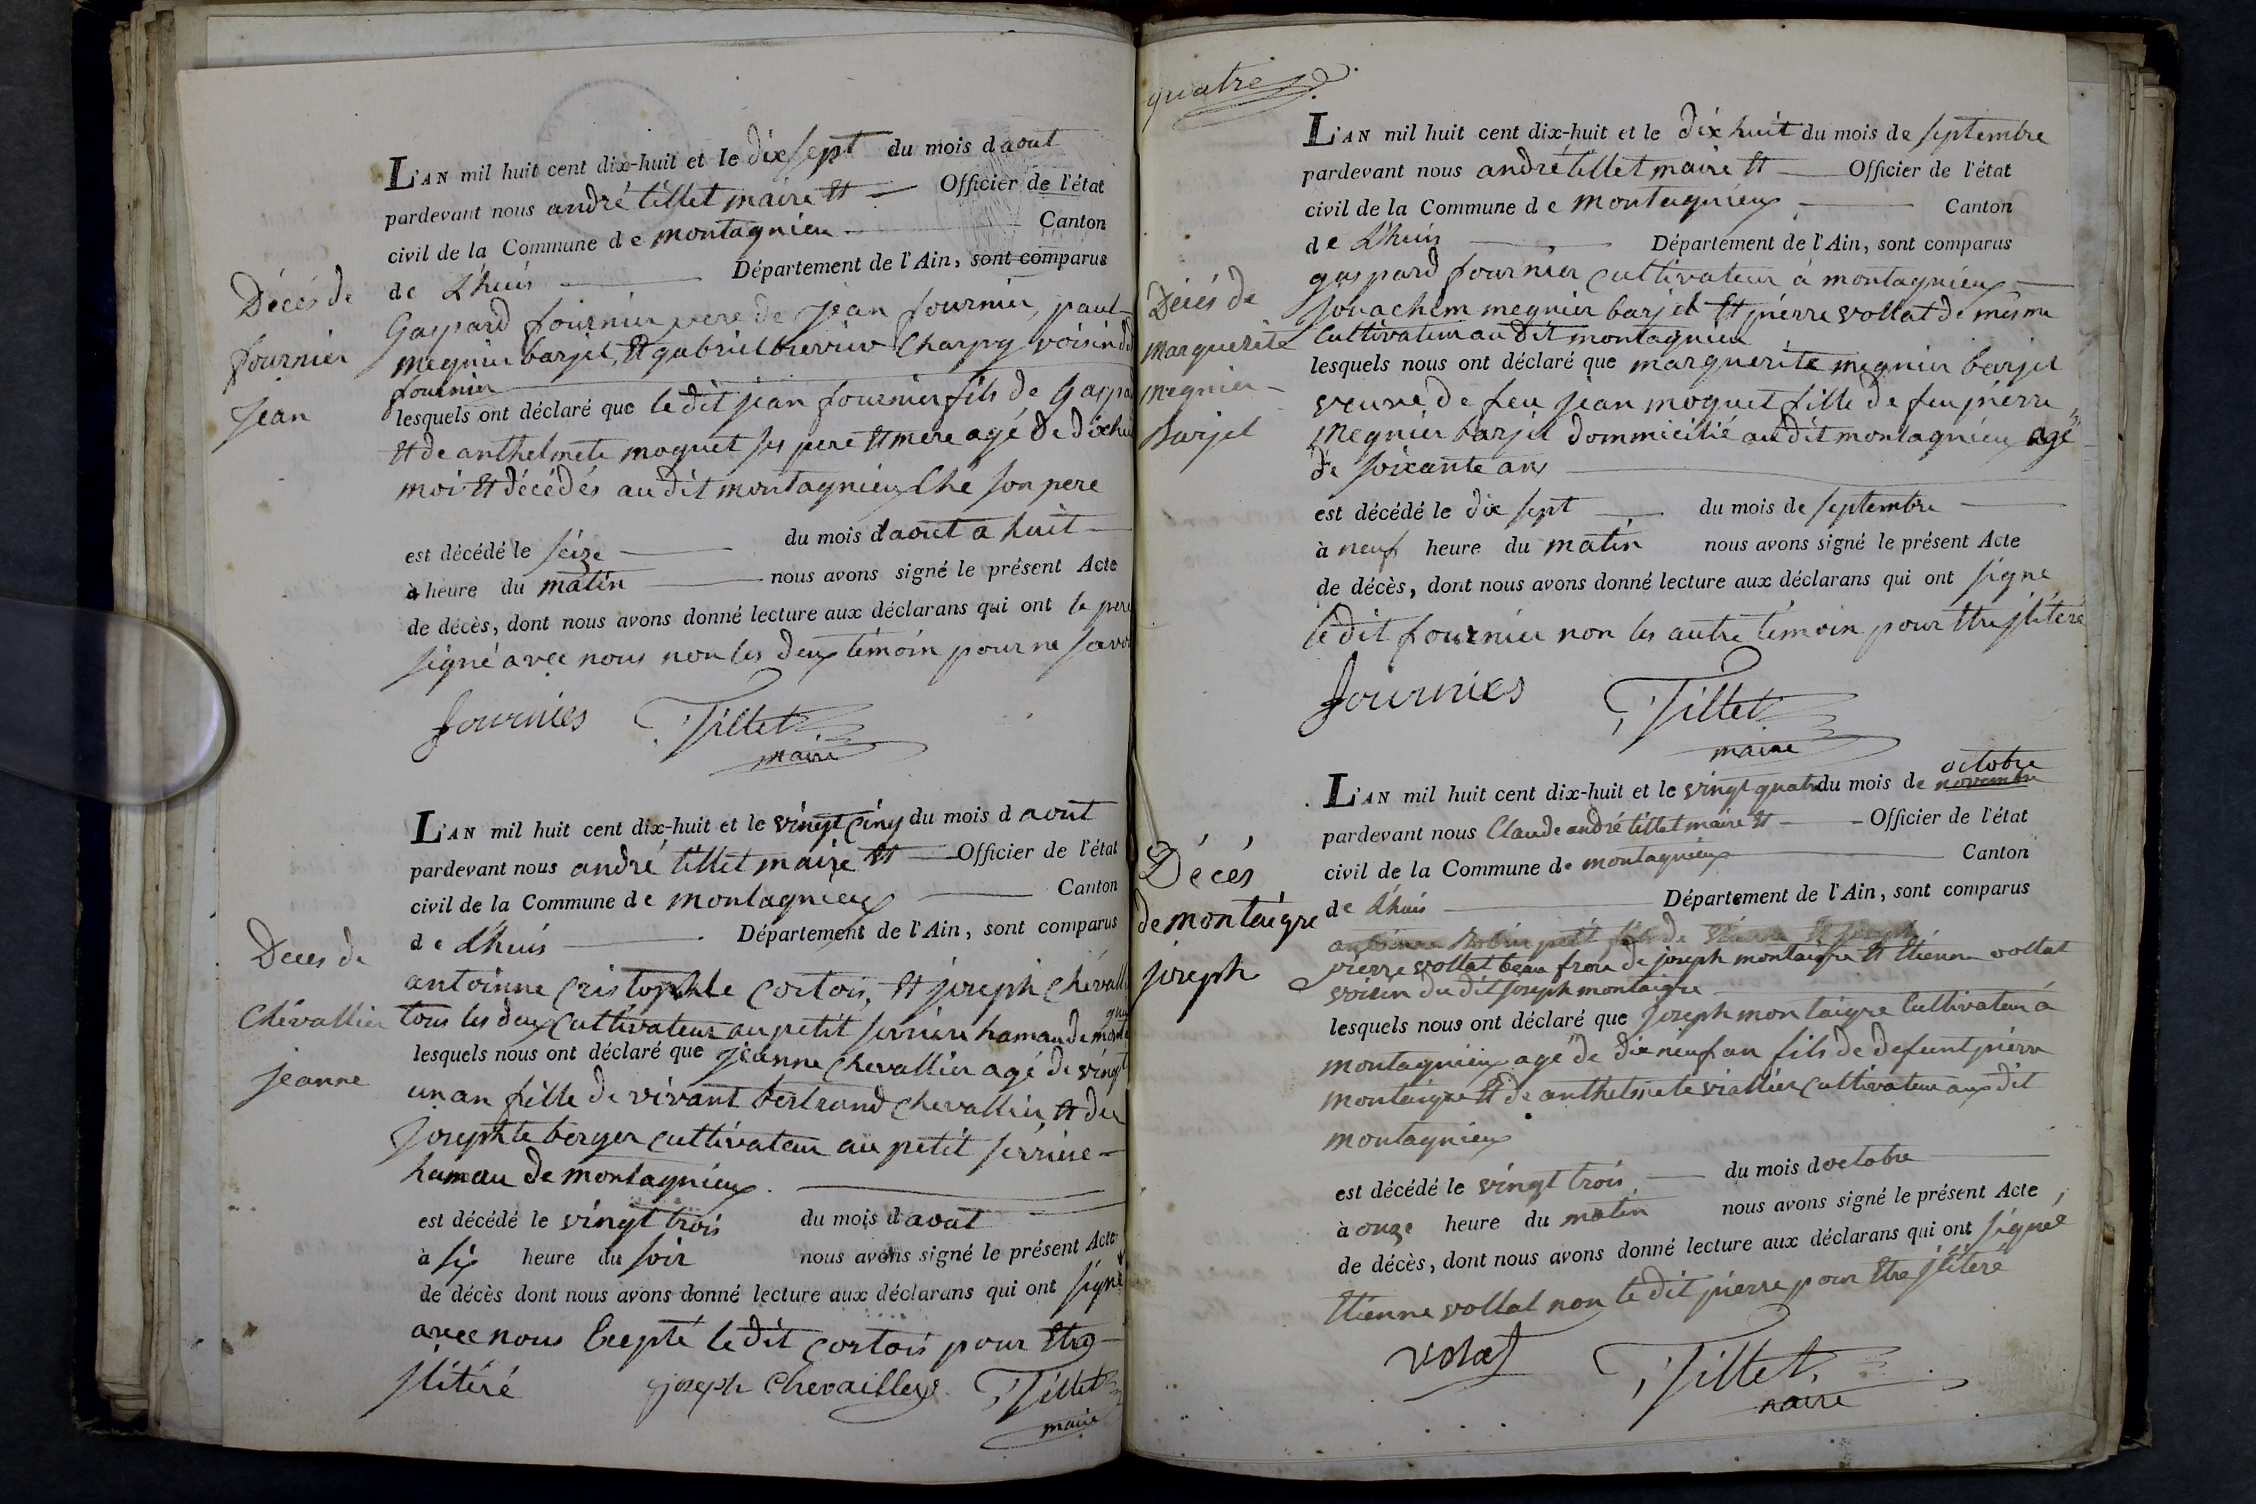 L'AN mil huit cent dix-huit et le dix sept du mois d aout
pardevant nous andré tillet maire et Officier de l'état
civil de la Commune de montagnieu Canton
de L'huis Département de l'Ain, sont comparus
Décés de
fournier
jean
Gaspard fournier pere de jean fournier, paul
megnier barjel, et gabriel Charpy voisin du
fournier
lesquels ont déclaré que le dit jean fournier fils de Gaspa
et de anthelmete moquet ses pere et mere agé de dix hui
moi et décédés au dit montagnieu Ché son pere
est décédé le séize du mois d'aout a huit
à heure du matin nous avons signé le présent Acte
de décès, dont nous avons donné lecture aux déclarans qui ont le pere
signé avec nous non les deux témoin pour ne savoi
fournier Tillet
maire
L'AN mil huit cent dix-huit et le vingt cinq du mois d aout
pardevant nous andré tillet maire et Officier de l'état
civil de la Commune de montagnieu Canton
de L'huis Département de l'Ain, sont comparus
Deces de
Chévallier
jeanne
antoinne Cristophle Cortois, et joseph Chévall
tous les deux Cultivateur au petit serriere hamau de mont
lesquels nous ont déclaré que jeanne Chevallier agé de vingt
un an fille de vivant bertrand Chevallier et de
josephte berger cultivateur au petit serriere
hamau de montagnieu
est décédé le vingt trois du mois d aout
à six heure du soir nous avons signé le présent Acte
de décès dont nous avons donné lecture aux déclarans qui ont signé
avec nous Cepté le dit Cortois pour etre
jlitéré joseph Chevailley Tillet
maire
quatre
L'AN mil huit cent dix-huit et le dix huit du mois de septembre
pardevant nous andré tillet maire et Officier de l'état
civil de la Commune de montagnieu Canton
de L'huis Département de l'Ain, sont comparus
Décés de
marguerite
megnier
Barjel
gaspard fournier cultivateur à montagnieu
jouachem megnier barjel et pierre vollat de mesme
Cultivateur au dit montagnieu
lesquels nous ont déclaré que marguerite megnier barjel
veuve de feu jean moquet fille de feu pierre
megnier barjel dommicilié au dit montagnieu agé
de soixante ans
est décédé le dix sept du mois de septembre
à neuf heure du matin nous avons signé le présent Acte
de décès, dont nous avons donné lecture aux déclarans qui ont signe
le dit fournier non les autre témoin pour etre jlitéré
fournier Tillet
maire
octobre
L'AN mil huit cent dix-huit et le vingt quatre du mois de novembre
pardevant nous Claude andré tillet maire et Officier de l'état
civil de la Commune de montagnieu Canton
de L'huis Département de l'Ain, sont comparus
Décés
de montaigre
joseph
pierre vollat beau frere de joseph montaigre et Etienne vollat
voisin du dit joseph montaigre
lesquels nous ont déclaré que joseph montaigre Cultivateur á
montagnieu agé de dix neuf an fils de defeunt pierre
montaigre et de anthelmete viallier cultivateur aux dit
montagnieu
est décédé le vingt trois du mois d octobre
à onze heure du matin nous avons signé le présent Acte
de décès, dont nous avons donné lecture aux déclarans qui ont signé
Etienne vollat non le dit pierre pour etre jlitéré
volat Tillet
maire